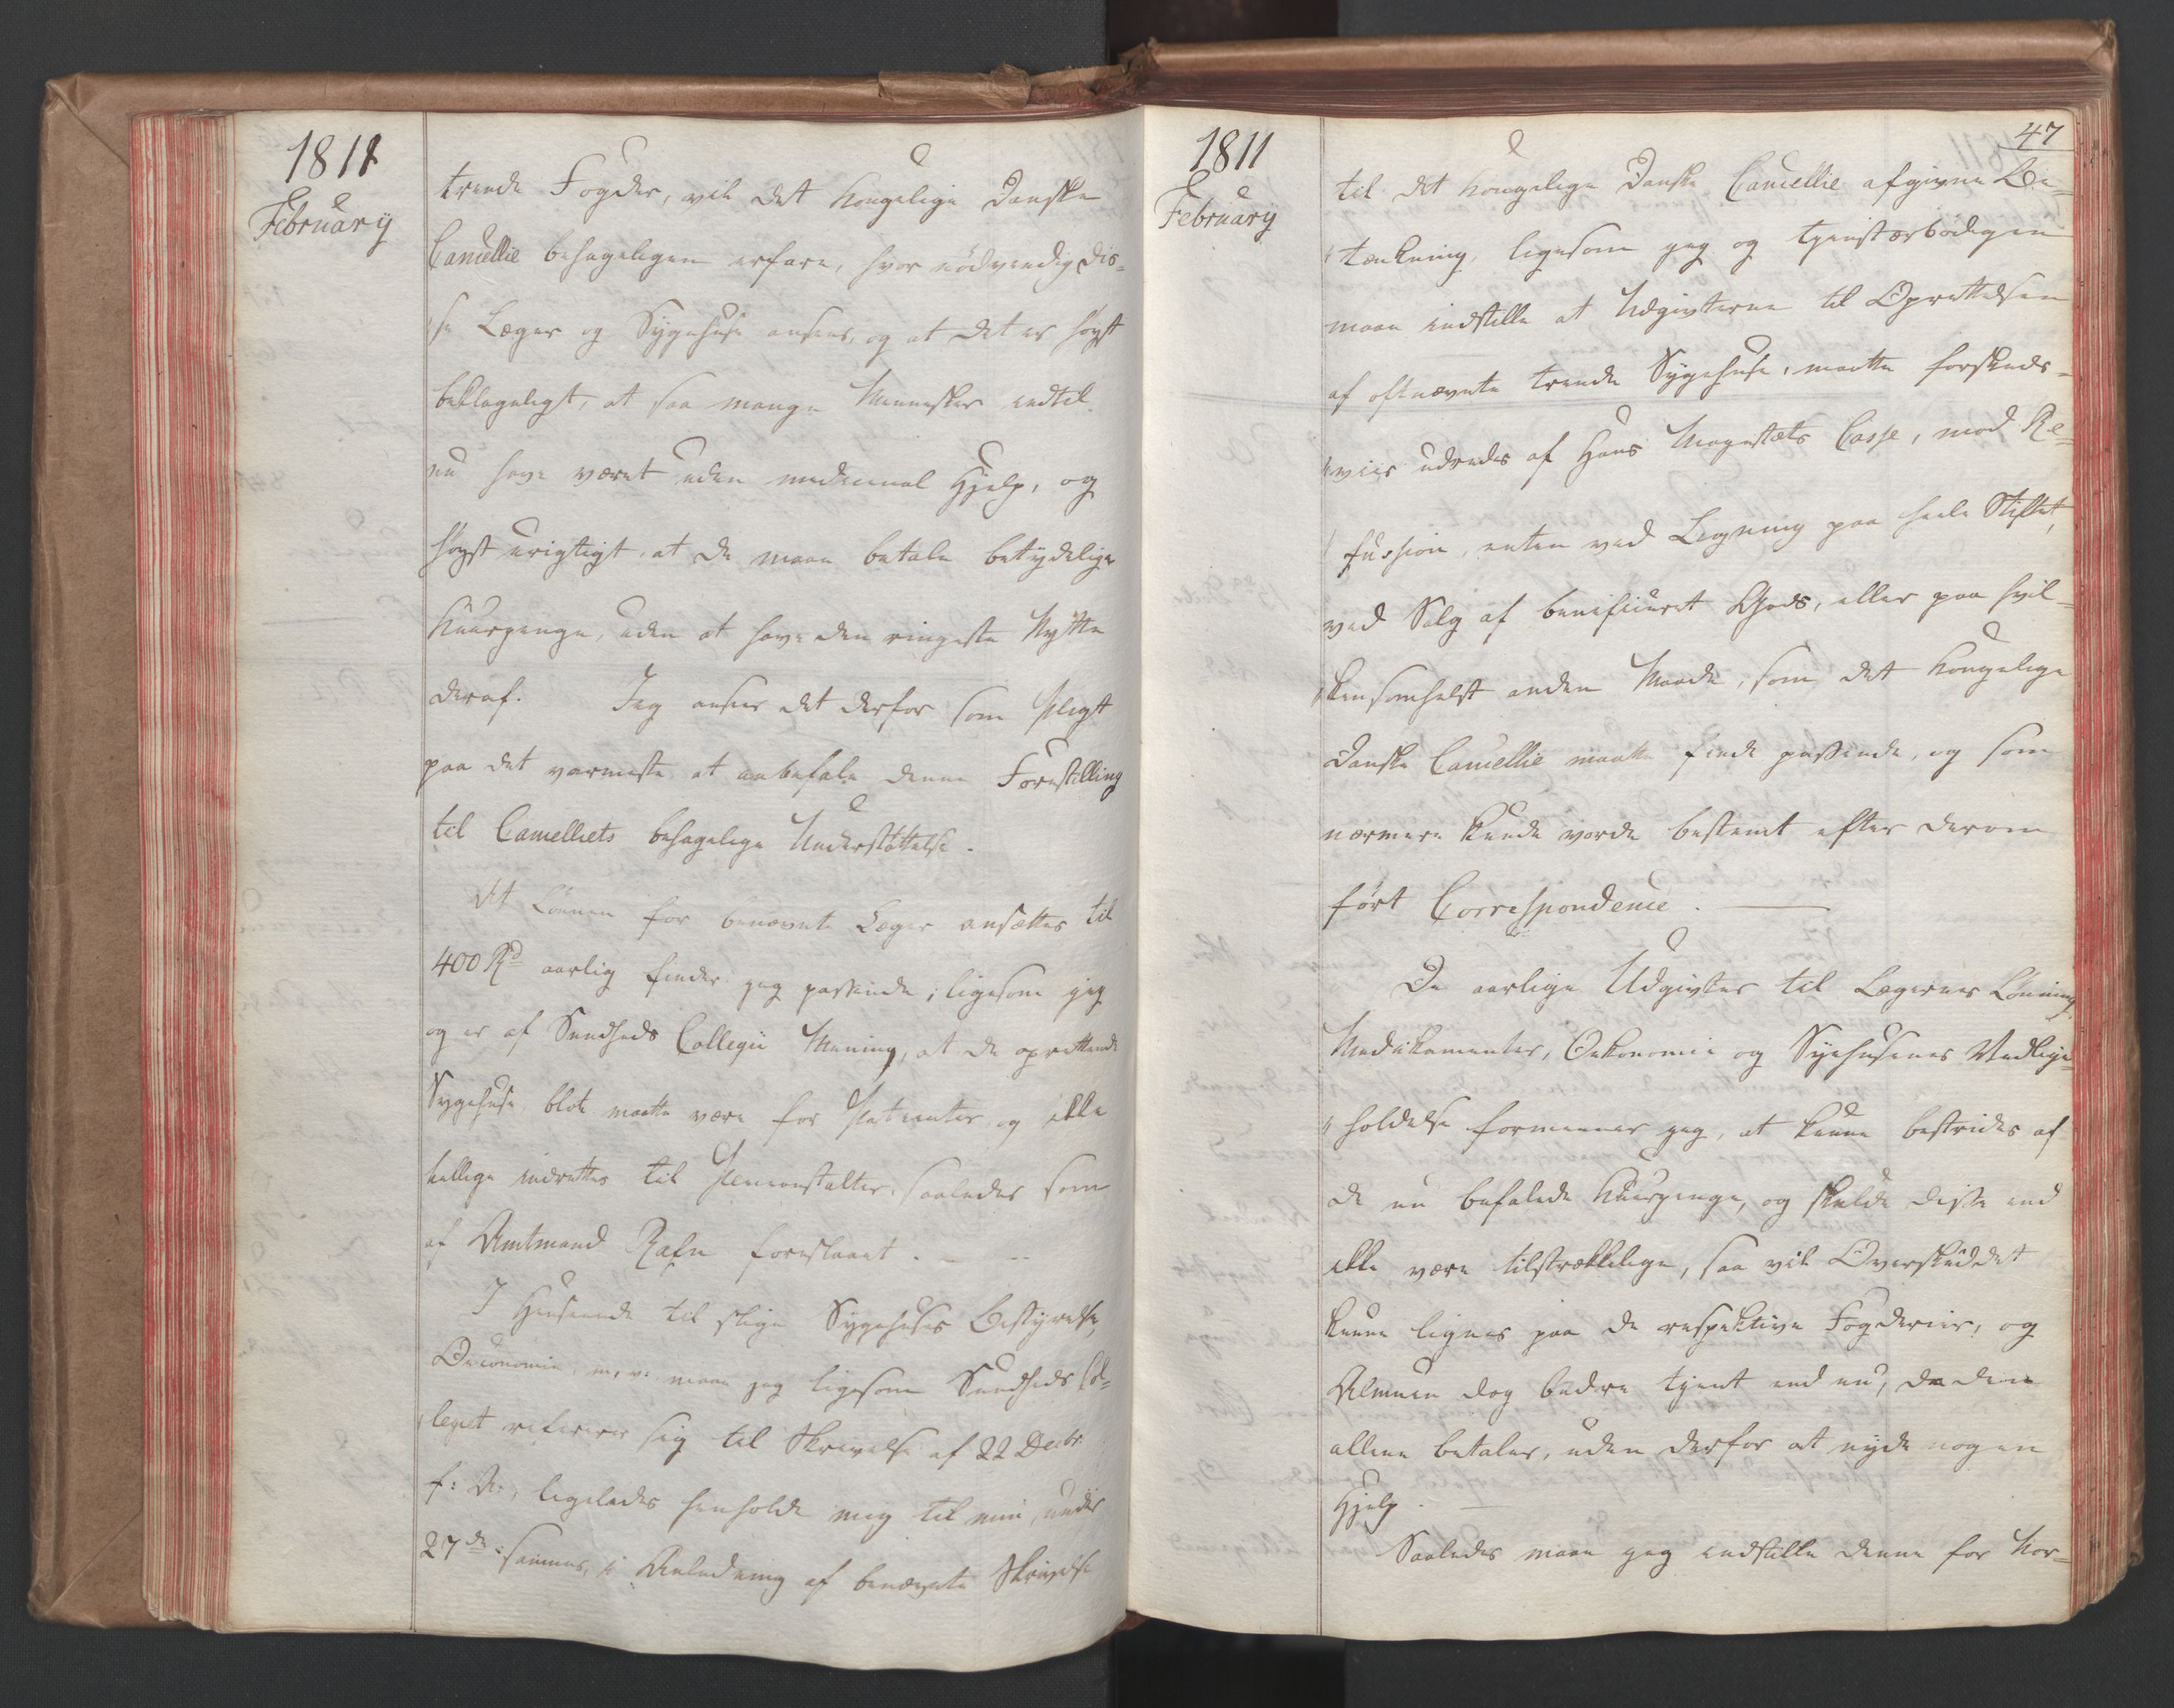 1811
February
trende Fogder, vil det Kongelige Danske
Cancellie behageligen erfare, hvor nødvendig dis=
se Læger og Sygehuse ansees, og at det er høyst
beklageligt, at saa mange Mennesker indtil
nu have været uden medicinal Hjelp, og
høyst urigtigt, at de maae betale betydelige
Kuurpenge, uden at have den ringeste Nytte
deraf. Jeg anseer det derfor som Pligt
paa det varmeste at anbefale denne Forestilling
til Cancelliets behagelige Understøttelse.
At Lønnen for benævnte Læger ansættes til
400 Rd aarlig finder jeg passende; ligesom jeg
og er af Sundheds Collegii Mening, at de oprettende
Sygehuse blot maatte være for Patienter og ikke
tillige indrettes til Pleieanstalter, saaledes som
af Amtmand Rafn foreslaaet. — --
I Henseende til slige Sygehuses Bestyrelse,
Oeconomie m. v. maae jeg ligesom Sundheds Col=
legiet referere sig til Skrivelse af 22 Decbr.
f: A:, ligeledes henholde mig til min, under
27de: samme, i Anledning af benævnte Skrivelse
1811
February
47
til det kongelige Danske Cancellie afgivne Be=
tænkning, ligesom jeg og tjenstærbødigen
maae indstille at Udgivterne til Oprettelsen
af oftnævnte trende Sygehuse, maatte forskuds=
viis udredes af Hans Majestæts Casse, mod Re=
fussion, enten ved Ligning paa hele Stiftet,
ved Salg af beneficeret Gods, eller paa hvil=
kensomhelst anden Maade, som det Kongelige
Danske Cancellie maatte finde passende, og som
nærmere kunde vorde bestemt efter derom
ført Correspondence. —
De aarlige Udgivter til Lægernes Lønning,
Medikamenter, Oekonomie og Syehusenes Vedlige=
holdelse formener jeg, at kunne bestrides af
de nu befalede Kuurpenge, og skulde disse end
ikke være tilstrækkelige, saa vil Overskuddet
kunne lignes paa de respektive Fogderier, og
Almuen dog bedre tjent end nu, da den
allene betaler, uden derfor at nyde nogen
Hjelp. —
Saaledes maae jeg indstille denne for Nor=